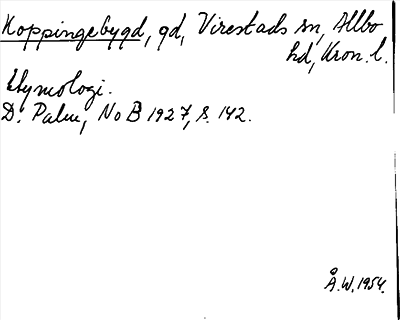 Hoppingebygd, gd, Virestads sn, Allbo
hd, Kron. l.
Etymologi.
D. Palm, No B 1927, s. 142.
Å.W. 1954.